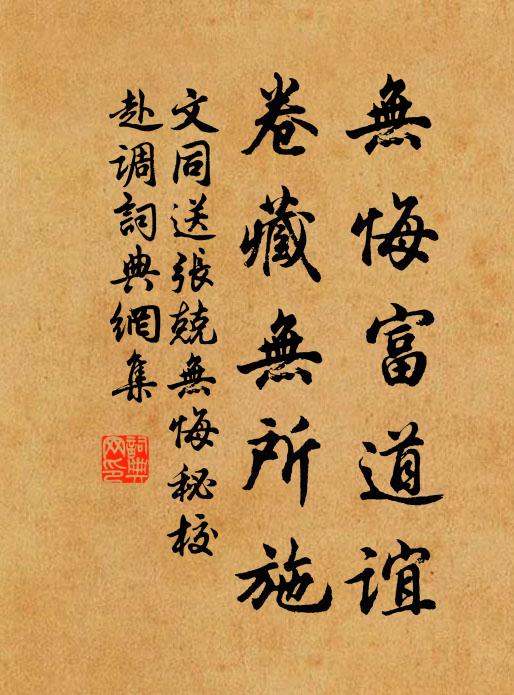 無悔富道誼
卷藏無所施
文同送張兢無悔秘校
赴調詞典網集
詞典
网印